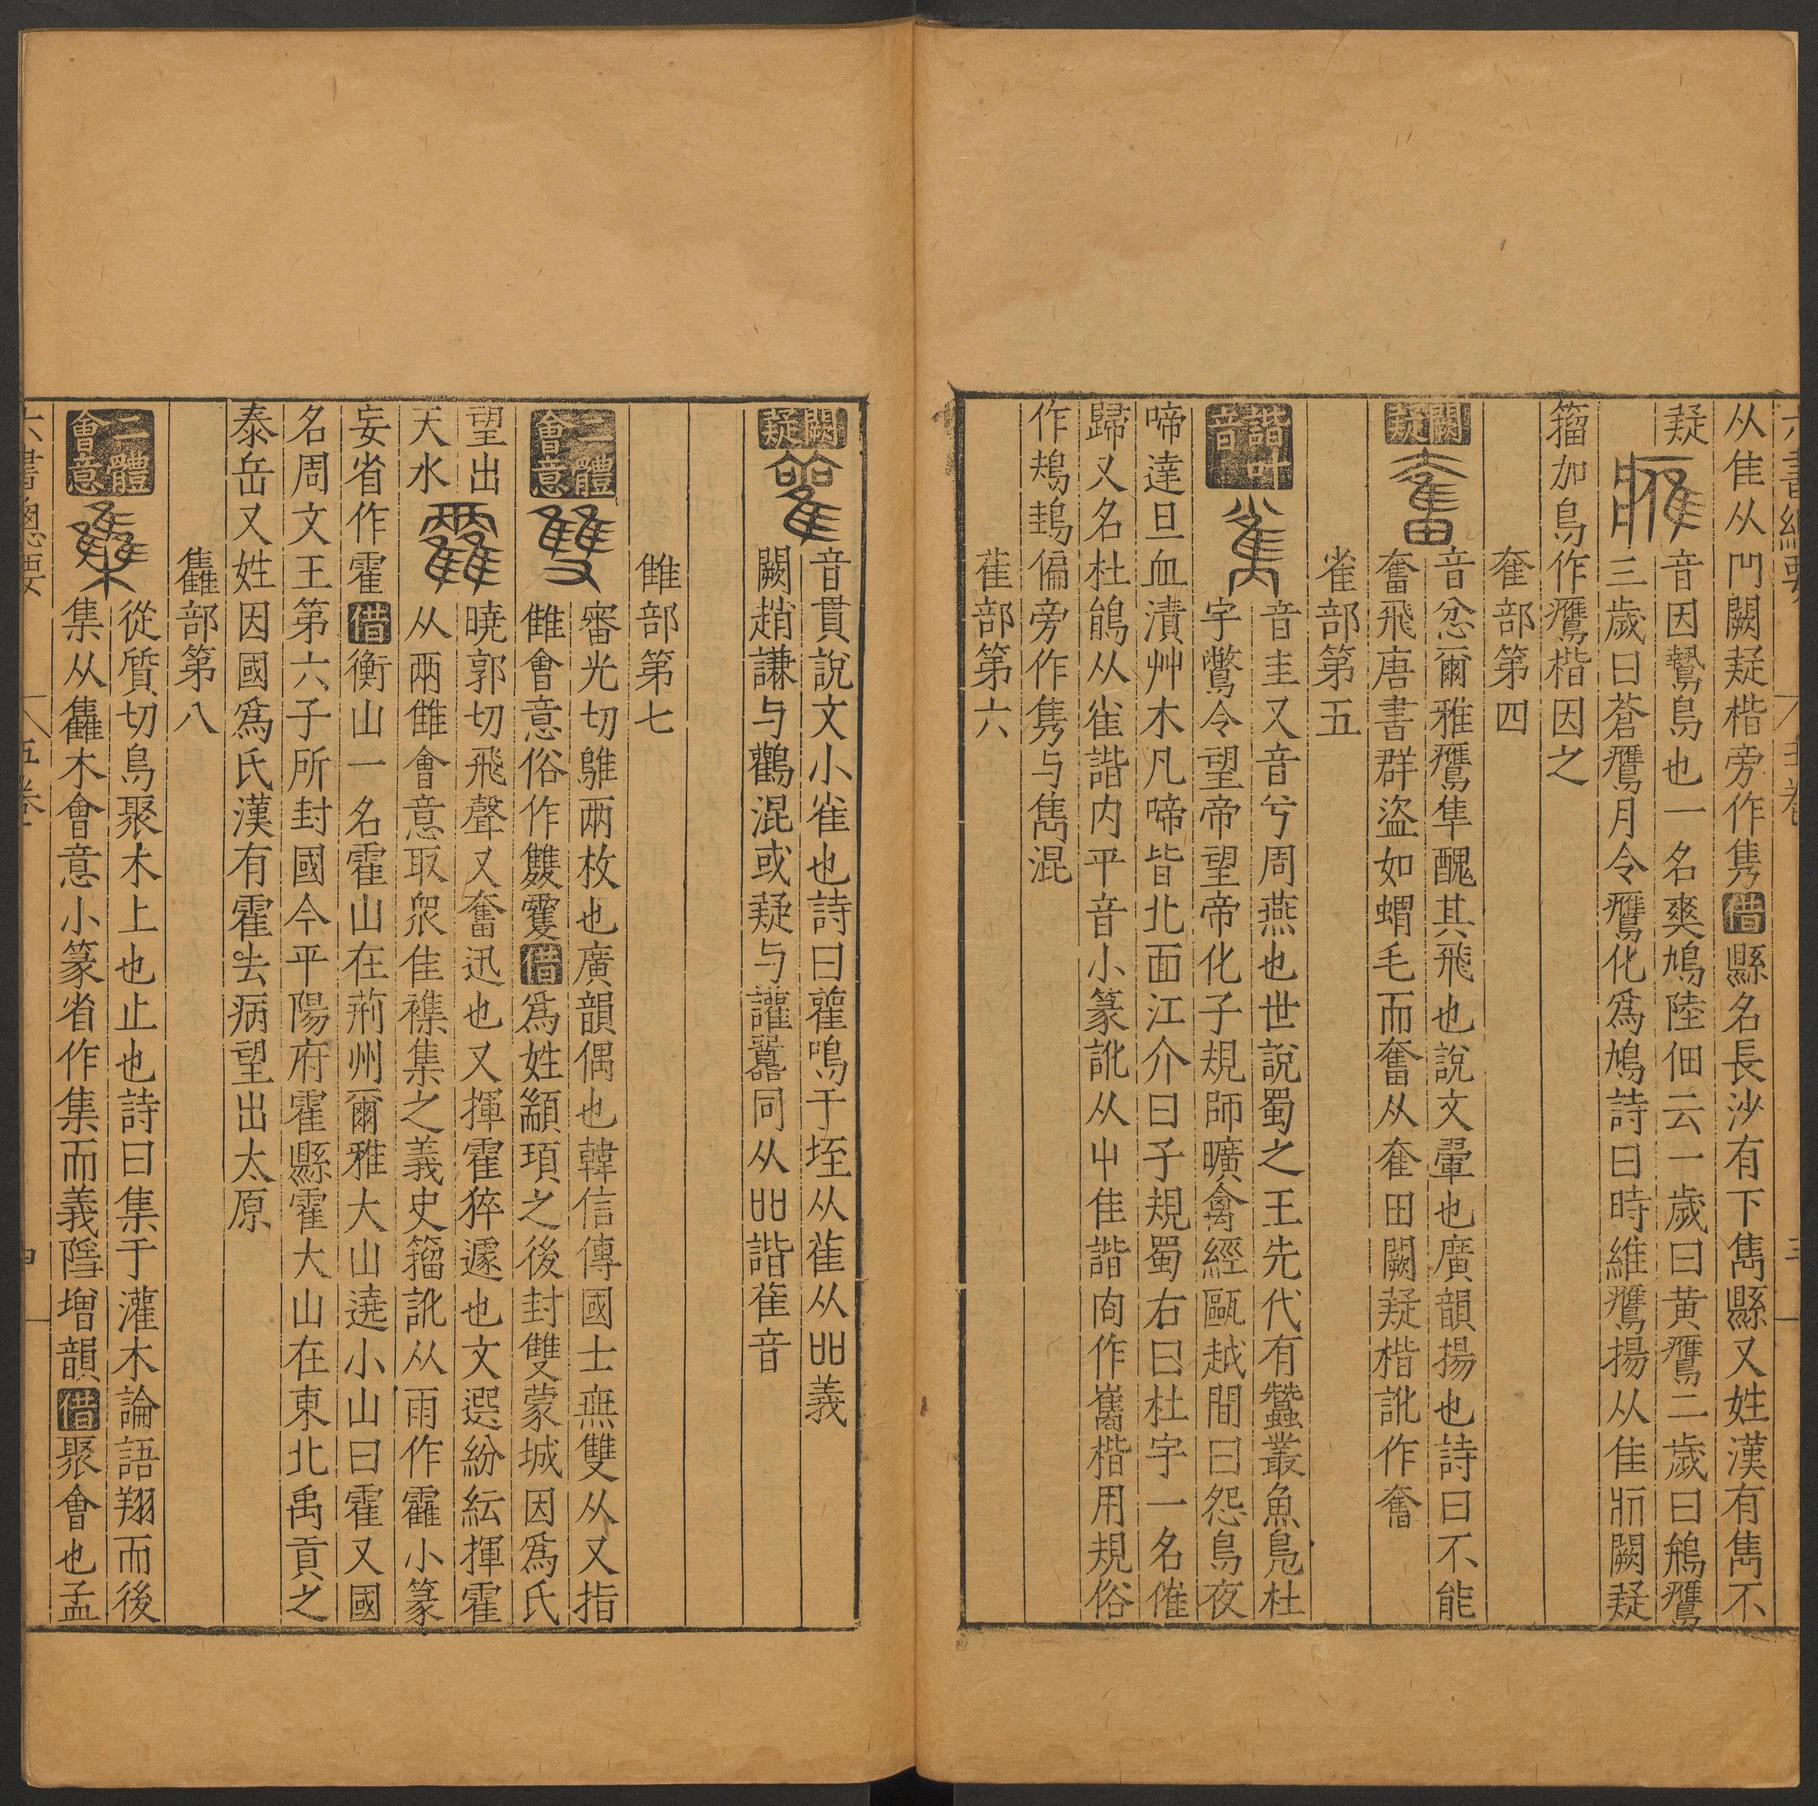 从隹从冎闕疑楷旁作隽借縣名長沙有下雋縣又姓漢有雋不
疑 音因鷙鳥也一名爽鳩陸佃云一歲曰黄鷹二歲曰鵃鷹
三歲曰蒼鷹月令鷹化爲鳩詩曰時維鷹揚从隹𤕫闕疑
籀加鳥作鷹楷因之
奞部第四
闕疑 音忿爾雅鷹隼醜其飛也說文翬也廣韻揚也詩曰不能
奮飛唐書群盗如蝟毛而奮从奞田闕疑楷訛作奮
雀部第五
諧叶音 音圭又音兮周燕也世說蜀之王先代有蠶叢魚鳧杜
宇鷩令望帝望帝化子規師曠禽經甌越間曰怨鳥夜
啼達旦血漬艸木凡啼皆北面江介曰子規蜀右曰杜宇一名催
歸又名杜鵑从雀諧内平音小篆訛从屮隹諧㕯作巂楷用規俗
作鳺䳏偏旁作隽与雋混
雈部第六
闕疑 音貫說文小雀也詩曰雚鳴于垤从雈从吅義
闕趙謙与鸛混或疑与讙嚻同从吅諧雈音
雔部第七
二體會意 審光切雔兩枚也廣韻偶也韓信傳國士無雙从又指
雔會意俗作䨇雙借爲姓顓頊之後封雙蒙城因爲氏
望出
天水 曉郭切飛聲又奮迅也又揮霍猝遽也文選紛紜揮霍
从雨雔會意取衆隹襍集之義史籀訛从雨作靃小篆
妄省作霍借衡山一名霍山在荊州爾雅大山遶小山曰霍又國
名周文王第六子所封國今平陽府霍縣霍大山在東北禹貢之
泰岳又姓因國爲氏漢有霍去病望出太原
雥部第八
二體會意 從質切鳥聚木上也止也詩曰集于灌木論語翔而後
集从雥木會意小篆省作集而義隱增韻借聚會也孟
五卷